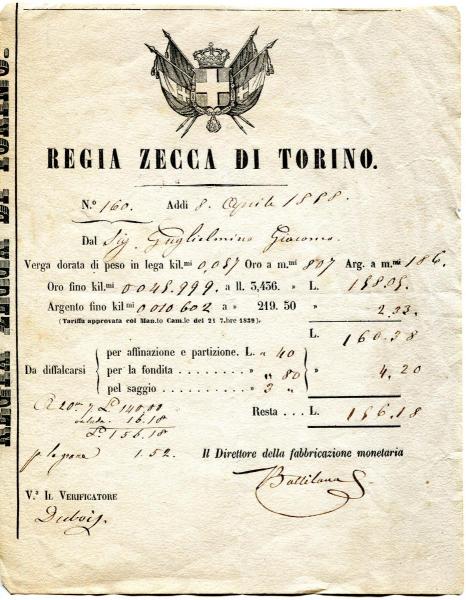 REGIA ZECCA DI TORINO.
REGIA ZECCA DI TORINO.
N.º 160. Addì 8. Aprile 1858
Dal Sig. Guglielmino Giacomo
Verga dorata di peso in lega kil.mi 0,057 Oro a m.mi 807 Arg. a m.mi 186.
Oro fino kil.mi 0 045,999 a ll. 3,436. » L. 158.05.
Argento fino kil.mi 0 010 602 a » 219. 50 » 2.33.
(Tariffa approvata col Man.to Cam.le del 21 7.bre 1839)
L. 160.38
Da diffalcarsi
per affinazione e partizione. L. " 40
per la fondita . . . . . . . . » " 80 » 4.20
pel saggio . . . . . . . . . . » 3 "
20 7 L. 140,00
16.18
L. 156.18
Resta . . L. 156.18
1.52.
Il Direttore della fabbricazione monetaria
Battilana
V.º IL VERIFICATORE
Dubois.